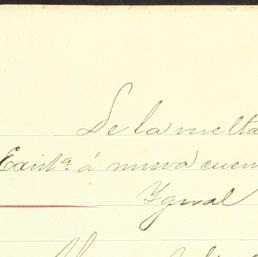 De la vuelta
Existª. á nueva cuen
Ygual